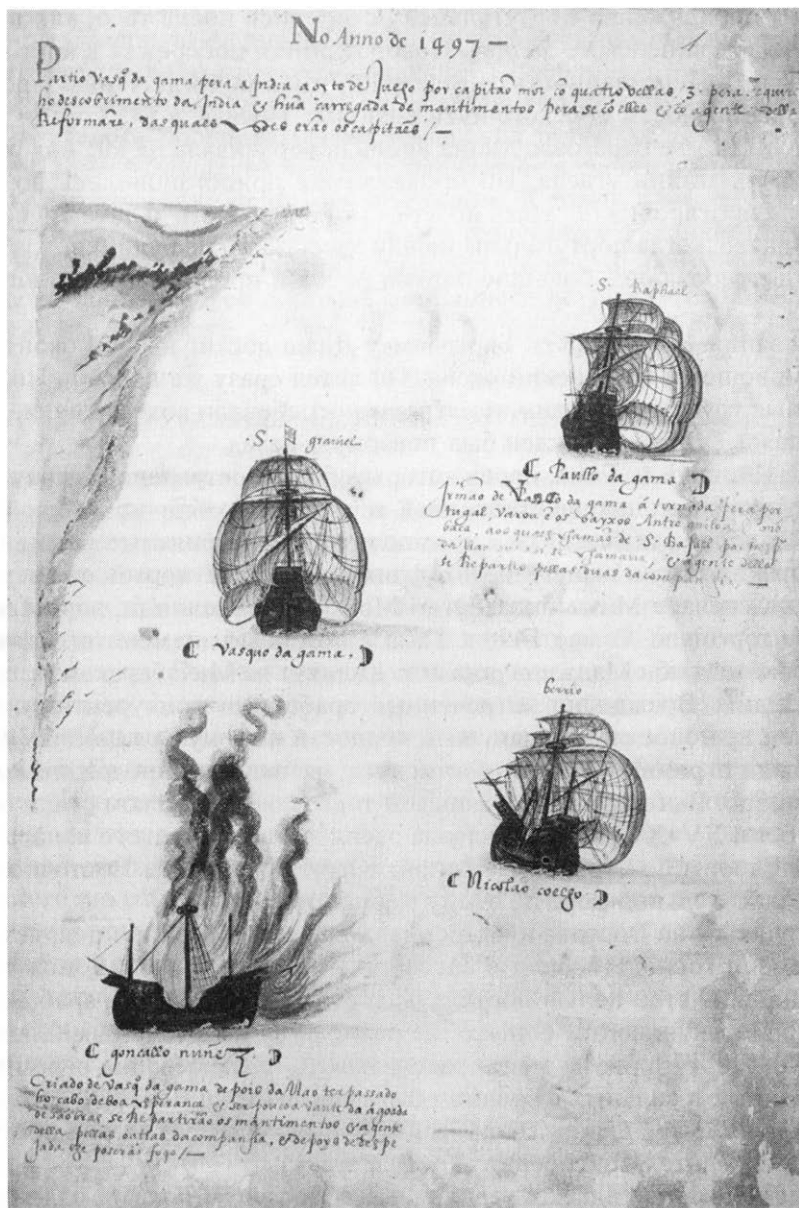 No Anno de 1497 —
Partio Vasq̃ da gama pera a India a oyto de Julho por capitaõ mór cõ quatro vellas, 3. pera
ho descobrimento da India & hũa carregada de mantimentos pera se cõ elles & cõ a gente della
Reformarẽ, das quaes erão os capitães /—
S. Raphael
S. graviel
☾ Paullo da gama ☽
Jrmaõ de Vasco da gama, á tornada pera por
tugal, varou ẽ os bayxos Antre
baça, aos quaes chamaõ de S. Rafael
& a gente della
se Repartio pellas duas da companhia.
☾ Vasquo da gama, ☽
berrio
☾ Nicolao coelho ☽
☾ goncallo nunẽz. ☽
Criado de Vasq̃ da gama depois da Nao ter passado
ho cabo de boa Esperança & ser pouco a vante da ágoada
de são Bras se Repartirão os mantimentos & a gente
della pellas outras da companhia, & depoys de despe
jada lhe poseraõ fogo /—